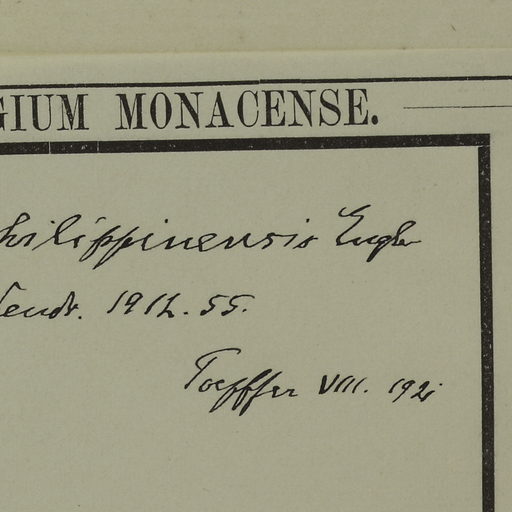 GIUM MONACENSE.
hilippinensis Engler
endr. 1912. 55.
Toepffer VIII. 192